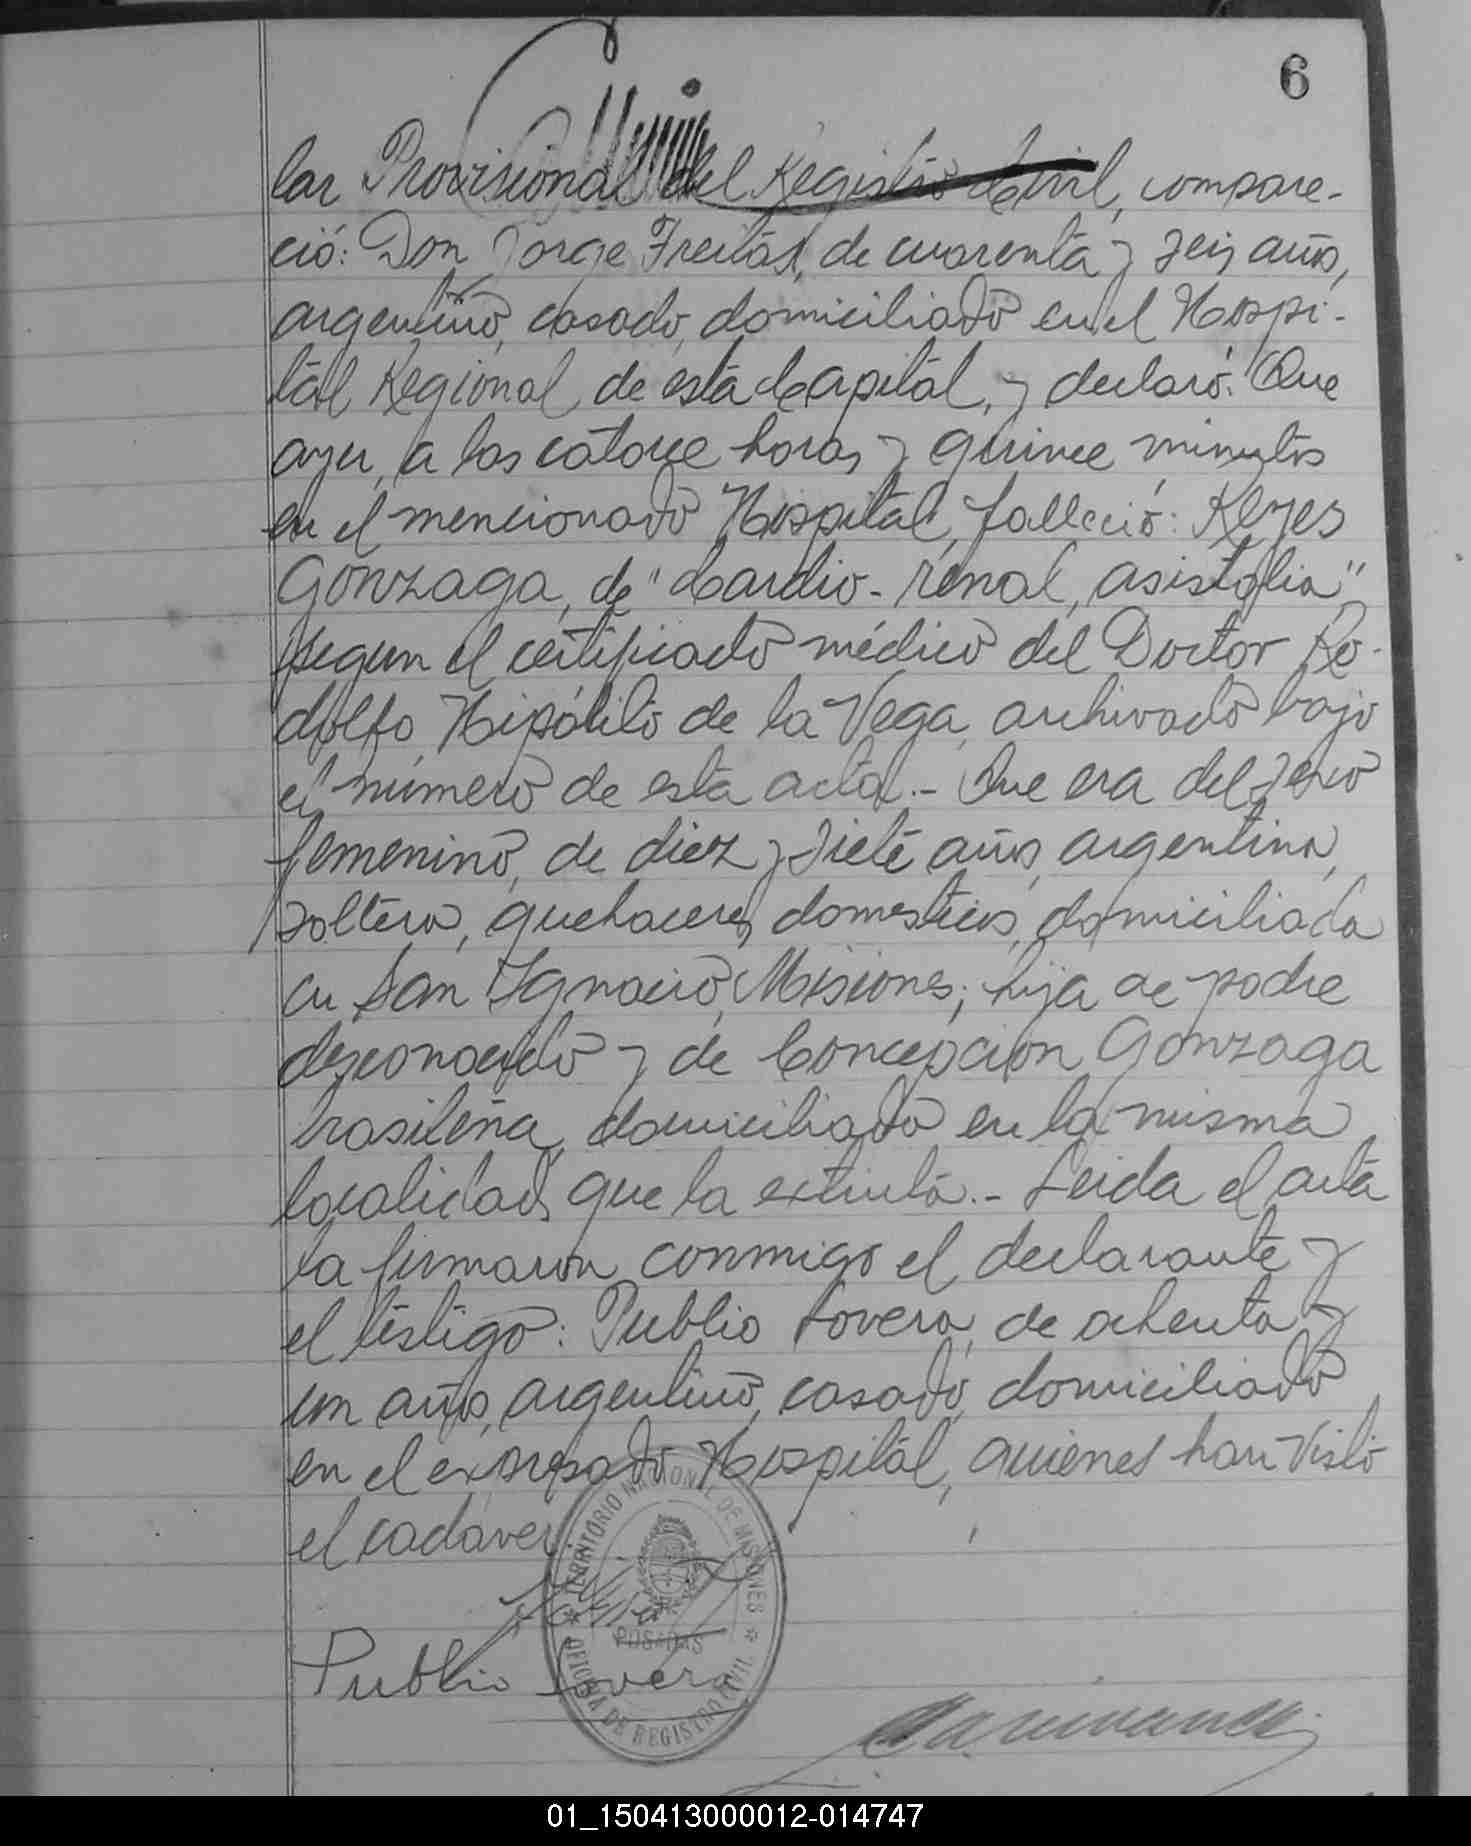 6
lar Provisional del Registro Civil, compare-
ció: Don Jorge Freitas, de cuarenta y seis años,
argentino, casado, domiciliado en el Hospi-
tal Regional de esta Capital, y declaró: Que
ayer, a las catorce horas y quince minutos
en el mencionado Hospital, falleció: Reyes
Gonzaga, de "Cardio-renal, asistolia"
segun el certificado médico del Doctor Ro-
dolfo Hipólito de la Vega, archivado bajo
el número de esta acta.- Que era del sexo
femenino, de diez y siete años, argentina,
soltera, quehaceres domesticos, domiciliada
en San Ignacio, Misiones; hija de padre
desconocido y de Concepcion Gonzaga
brasileña, domiciliada en la misma
localidad que la extinta.- Leida el acta
la firmaron conmigo el declarante y
el testigo: Publio Lovera, de ochenta y
un años, argentino, casado, domiciliado
en el expresado Hospital, quienes han visto
el cadáver
TERRITORIO NACIONAL DE MISIONES
POSADAS
OFICINA DE REGISTRO CIVIL
Publio Lovera
01_150413000012-014747